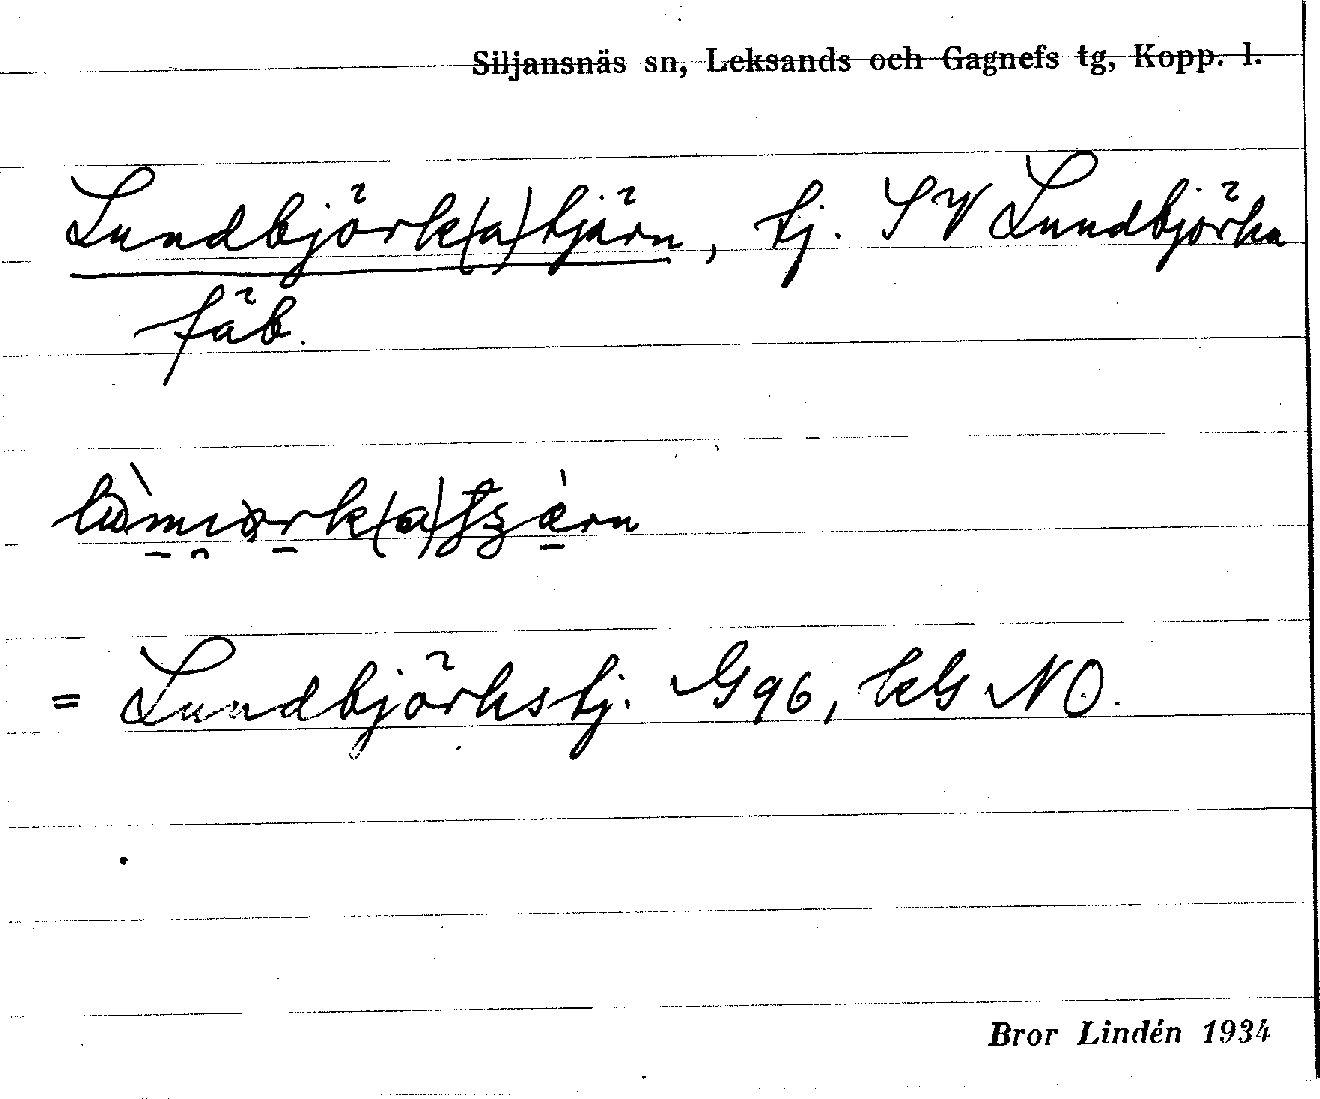 Siljansnäs sn, Leksands och Gagnefs tg, Kopp. l.
Lundbjörk(a)tjärn, tj. SV Lundbjörka
fäb.
= Lundbjörkstj. G96, kG NO.
Bror Lindén 1934